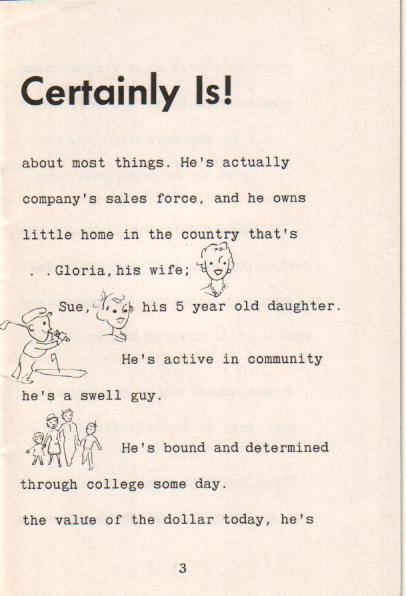 Certainly Is!
about most things. He's actually
company's sales force, and he owns
little home in the country that's
. . Gloria, his wife;
Sue, his 5 year old daughter.
He's active in community
he's a swell guy.
He's bound and determined
through college some day.
the value of the dollar today, he's
3